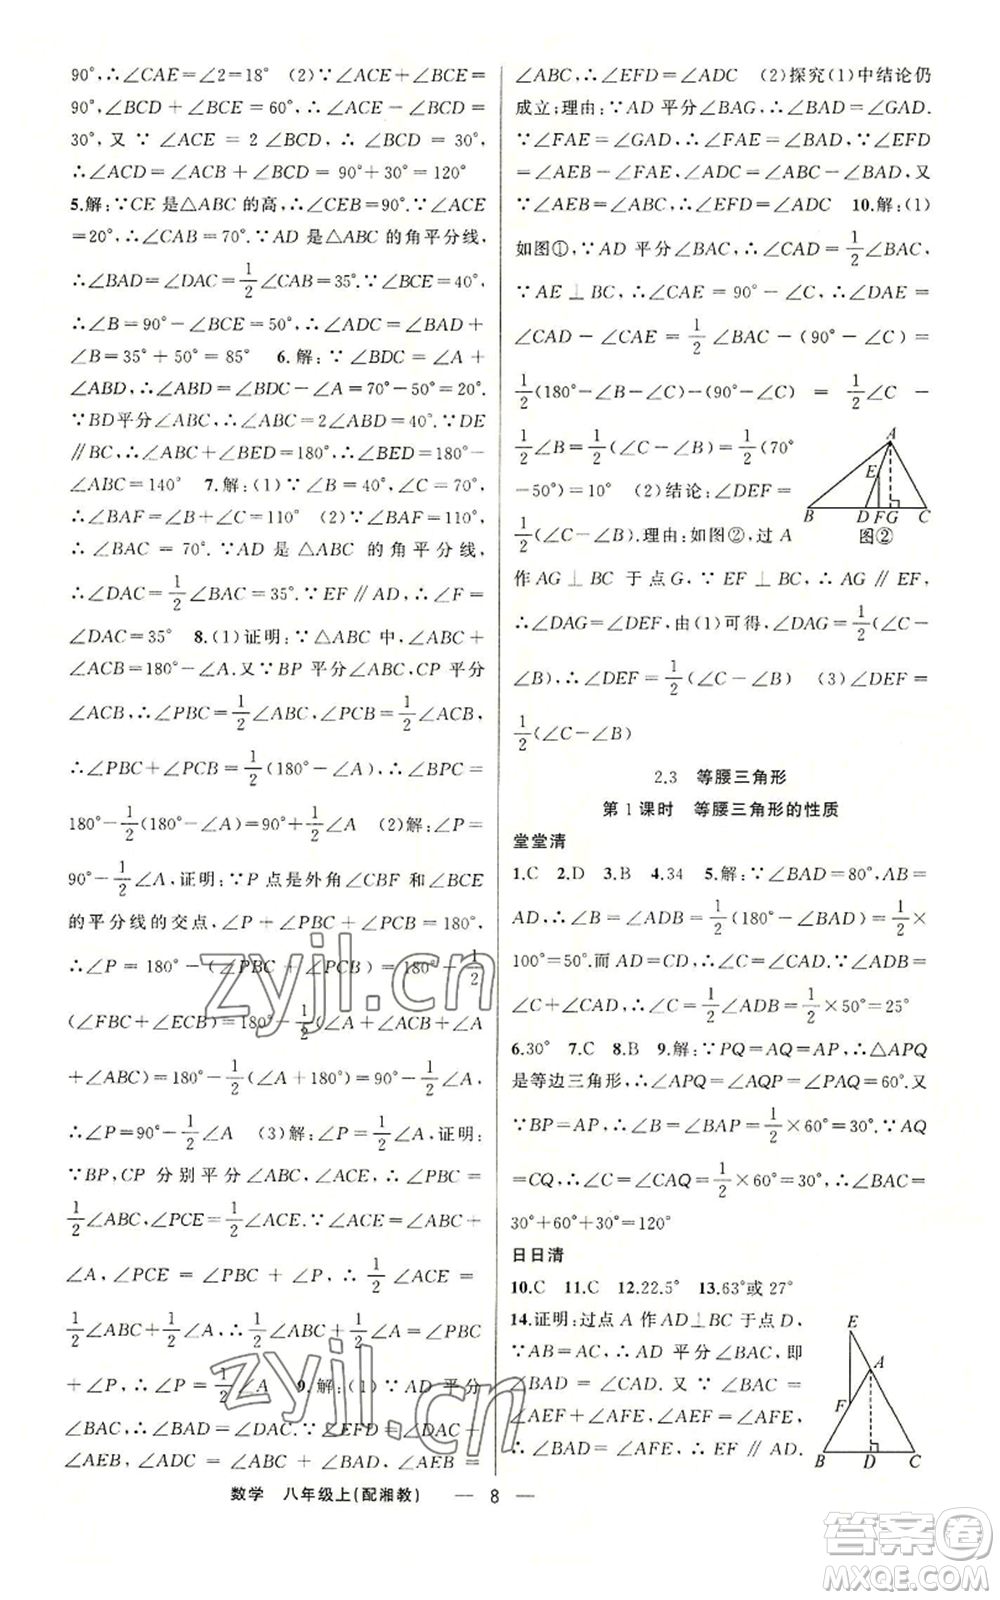 90°,∴∠CAE=∠2=18° (2)∵∠ACE+∠BCE=
90°,∠BCD+∠BCE=90°,∴∠ACE-∠BCD=
30°,又∵∠ACE=2∠BCD,∴∠BCD=30°,
∴∠ACD=∠ACE+∠BCD=90°+30°=120°
5.解:∵CE是△ABC的高,∴∠CEB=90°.∵∠ACE
=20°,∴∠CAB=70°.∵AD是△ABC的角平分线,
∴∠BAD=∠DAC=1/2∠CAB=35°.∵∠BCE=40°,
∴∠B=90°-∠BCE=50°,∴∠ADC=∠BAD+
∠B=35°+50°=85° 6.解:∵∠BDC=∠A+
∠ABD,∴∠ABD=∠BDC-∠A=70°-50°=20°.
∵BD平分∠ABC,∴∠ABC=2∠ABD=40°.∵DE
∥BC,∴∠ABC+∠BED=180°,∴∠BED=180°-
∠ABC=140° 7.解:(1)∵∠B=40°,∠C=70°,
∴∠BAF=∠B+∠C=110° (2)∵∠BAF=110°,
∴∠BAC=70°.∵AD是△ABC的角平分线,
∴∠DAC=1/2∠BAC=35°.∵EF∥AD,∴∠F=
∠DAC=35° 8.(1)证明:∵△ABC中,∠ABC+
∠ACB=180°-∠A.又∵BP平分∠ABC,CP平分
∠ACB,∴∠PBC=1/2∠ABC,∠PCB=1/2∠ACB,
∴∠PBC+∠PCB=1/2(180°-∠A),∴∠BPC=
180°-1/2(180°-∠A)=90°+1/2∠A (2)解:∠P=
90°-1/2∠A,证明:∵P点是外角∠CBF和∠BCE
的平分线的交点,∠P+∠PBC+∠PCB=180°,
∴∠P=180°-(∠PBC+∠PCB)=180°-1/2
(∠FBC+∠ECB)=180°-1/2(∠A+∠ACB+∠A
+∠ABC)=180°-1/2(∠A+180°)=90°-1/2∠A,
∴∠P=90°-1/2∠A (3)解:∠P=1/2∠A,证明:
∵BP,CP分别平分∠ABC,∠ACE,∴∠PBC=
1/2∠ABC,∠PCE=1/2∠ACE.∵∠ACE=∠ABC+
∠A,∠PCE=∠PBC+∠P,∴1/2∠ACE=
1/2∠ABC+1/2∠A,∴1/2∠ABC+1/2∠A=∠PBC
+∠P,∴∠P=1/2∠A 9.解:(1)∵AD平分
∠BAC,∴∠BAD=∠DAC,∵∠EFD=∠DAC+
∠AEB,∠ADC=∠ABC+∠BAD,∠AEB=
∠ABC,∴∠EFD=∠ADC (2)探究(1)中结论仍
成立;理由:∵AD平分∠BAG,∴∠BAD=∠GAD.
∵∠FAE=∠GAD,∴∠FAE=∠BAD.∵∠EFD
=∠AEB-∠FAE,∠ADC=∠ABC-∠BAD,又
∵∠AEB=∠ABC,∴∠EFD=∠ADC 10.解:(1)
如图①,∵AD平分∠BAC,∴∠CAD=1/2∠BAC.
∵AE⊥BC,∴∠CAE=90°-∠C,∴∠DAE=
∠CAD-∠CAE=1/2∠BAC-(90°-∠C)=
1/2(180°-∠B-∠C)-(90°-∠C)=1/2∠C-
1/2∠B=1/2(∠C-∠B)=1/2(70°
-50°)=10° (2)结论:∠DEF=
1/2(∠C-∠B).理由:如图②,过A
作AG⊥BC于点G,∵EF⊥BC,∴AG∥EF,
∴∠DAG=∠DEF,由(1)可得,∠DAG=1/2(∠C-
∠B),∴∠DEF=1/2(∠C-∠B) (3)∠DEF=
1/2(∠C-∠B)
A
E
B D F G C
图②
2.3 等腰三角形
第1课时 等腰三角形的性质
堂堂清
1.C 2.D 3.B 4.34 5.解:∵∠BAD=80°,AB=
AD,∴∠B=∠ADB=1/2(180°-∠BAD)=1/2×
100°=50°.而AD=CD,∴∠C=∠CAD.∵∠ADB=
∠C+∠CAD,∴∠C=1/2∠ADB=1/2×50°=25°
6.30° 7.C 8.B 9.解:∵PQ=AQ=AP,∴△APQ
是等边三角形,∴∠APQ=∠AQP=∠PAQ=60°.又
∵BP=AP,∴∠B=∠BAP=1/2×60°=30°.∵AQ
=CQ,∴∠C=∠CAQ=1/2×60°=30°,∴∠BAC=
30°+60°+30°=120°
日日清
10.C 11.C 12.22.5° 13.63°或27°
14.证明:过点A作AD⊥BC于点D,
∵AB=AC,∴AD平分∠BAC,即
∠BAD=∠CAD.又∵∠BAC=
∠AEF+∠AFE,∠AEF=∠AFE,
∴∠BAD=∠AFE,∴EF∥AD.
E
A
F
B D C
数学 八年级上(配湘教) — 8 —
zyjl.cn
zyjl.cn
答案卷
MXQE.COM